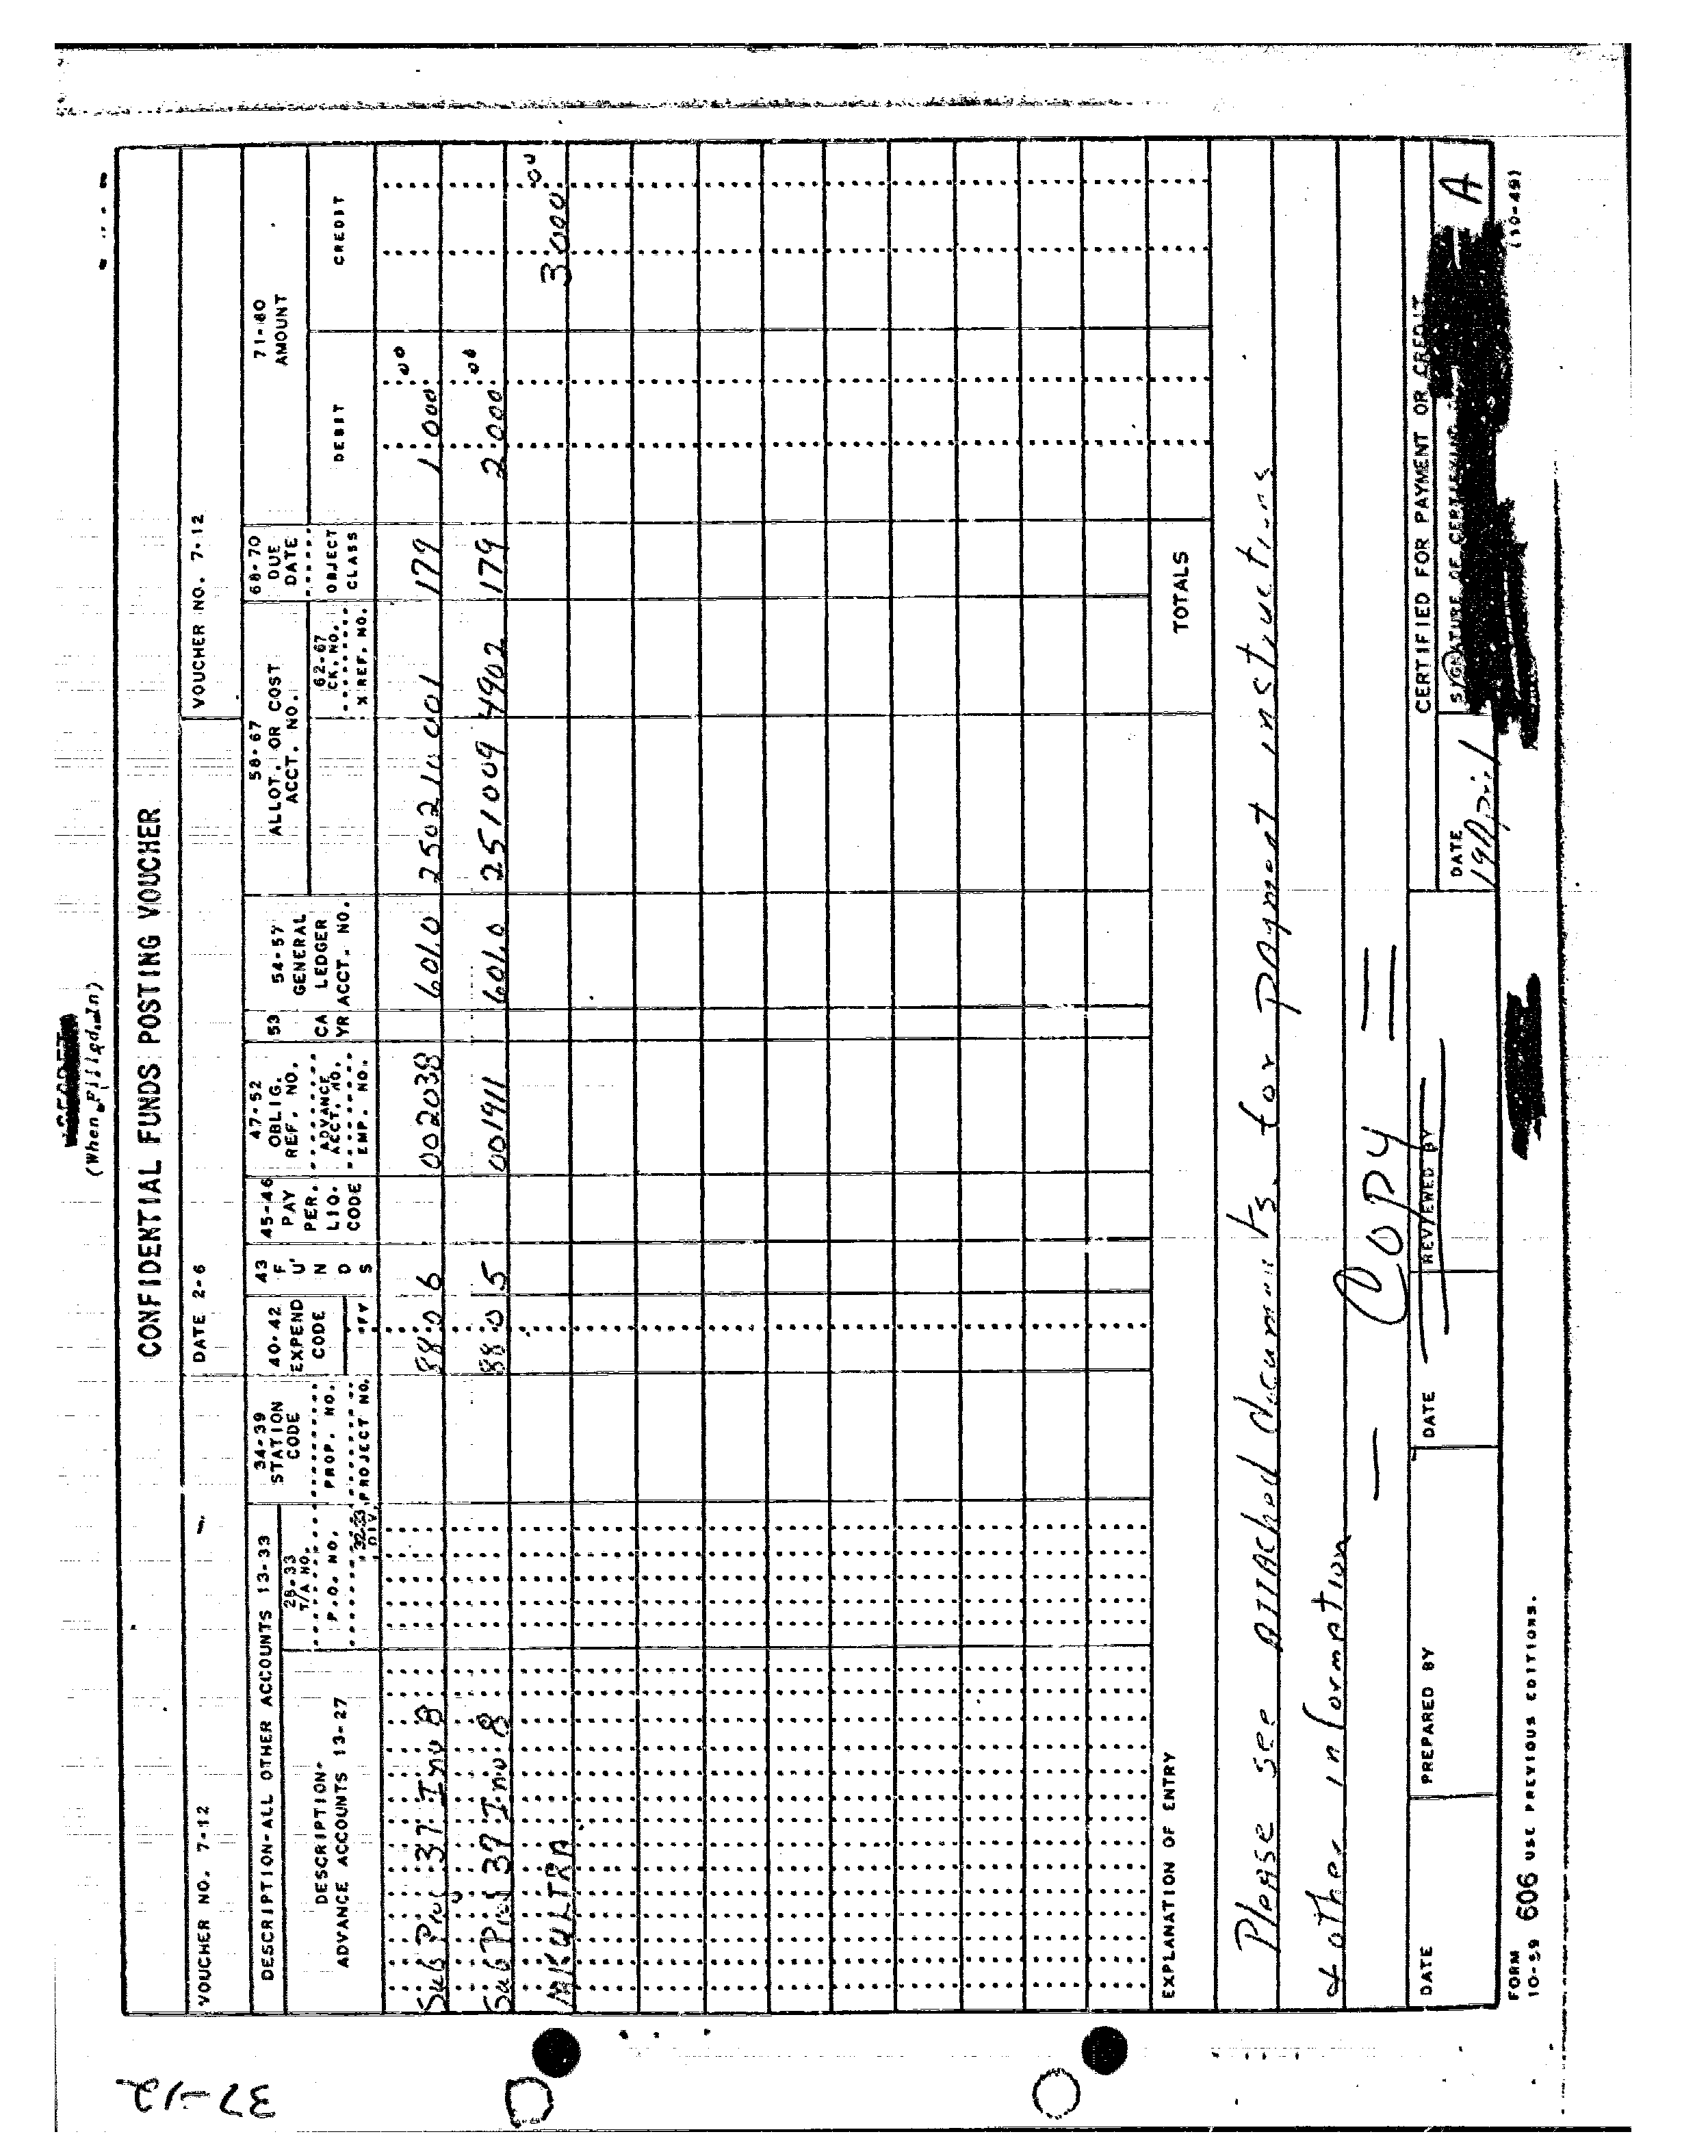 (When Filled In)
CONFIDENTIAL FUNDS POSTING VOUCHER
VOUCHER NO. 7-12
DATE 2-6
VOUCHER NO. 7-12
DESCRIPTION-ALL OTHER ACCOUNTS 13-33
DESCRIPTION-
ADVANCE ACCOUNTS 13-27
28-33
T/A NO.
P.O. NO.
32-33
DIV.
34-39
STATION
CODE
PROP. NO.
PROJECT NO.
40-42
EXPEND
CODE
FY
43
F
U
N
D
S
45-46
PAY
PER.
LIQ.
CODE
47-52
OBLIG.
REF. NO.
ADVANCE
ACCT. NO.
EMP. NO.
53
CA
YR
54-57
GENERAL
LEDGER
ACCT. NO.
58-67
ALLOT. OR COST
ACCT. NO.
62-67
CK. NO.
X REF. NO.
68-70
DUE
DATE
OBJECT
CLASS
71-80
AMOUNT
DEBIT
CREDIT
Sub Proj 37 Inv 8 88 0 6 002038 601.0 179 1 000 00
Sub Proj 39 Inv 8 88 0 5 001911 601.0 251009 4902 179 2 000 00
MKULTRA 3 000 00
TOTALS
EXPLANATION OF ENTRY
Please see attached documents for payment instructions
& other information
— Copy =
DATE
PREPARED BY
DATE
REVIEWED BY
CERTIFIED FOR PAYMENT OR CREDIT
DATE
19 April
SIGNATURE OF CERTIFYING
A
FORM
10-59 606 USE PREVIOUS EDITIONS.
(10-49)
37-12